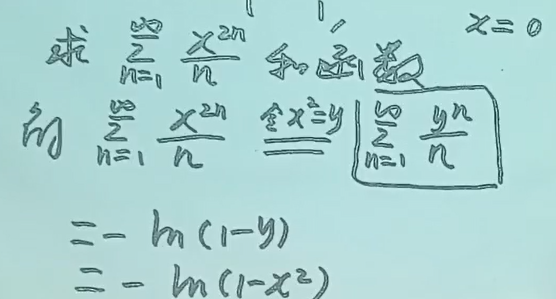 x=0
求 ∑_{n=1}^{∞} x^{2n}/n 和函数
∑_{n=1}^{∞} x^{2n}/n 令x²=y ∑_{n=1}^{∞} yⁿ/n
=-ln(1-y)
=-ln(1-x²)